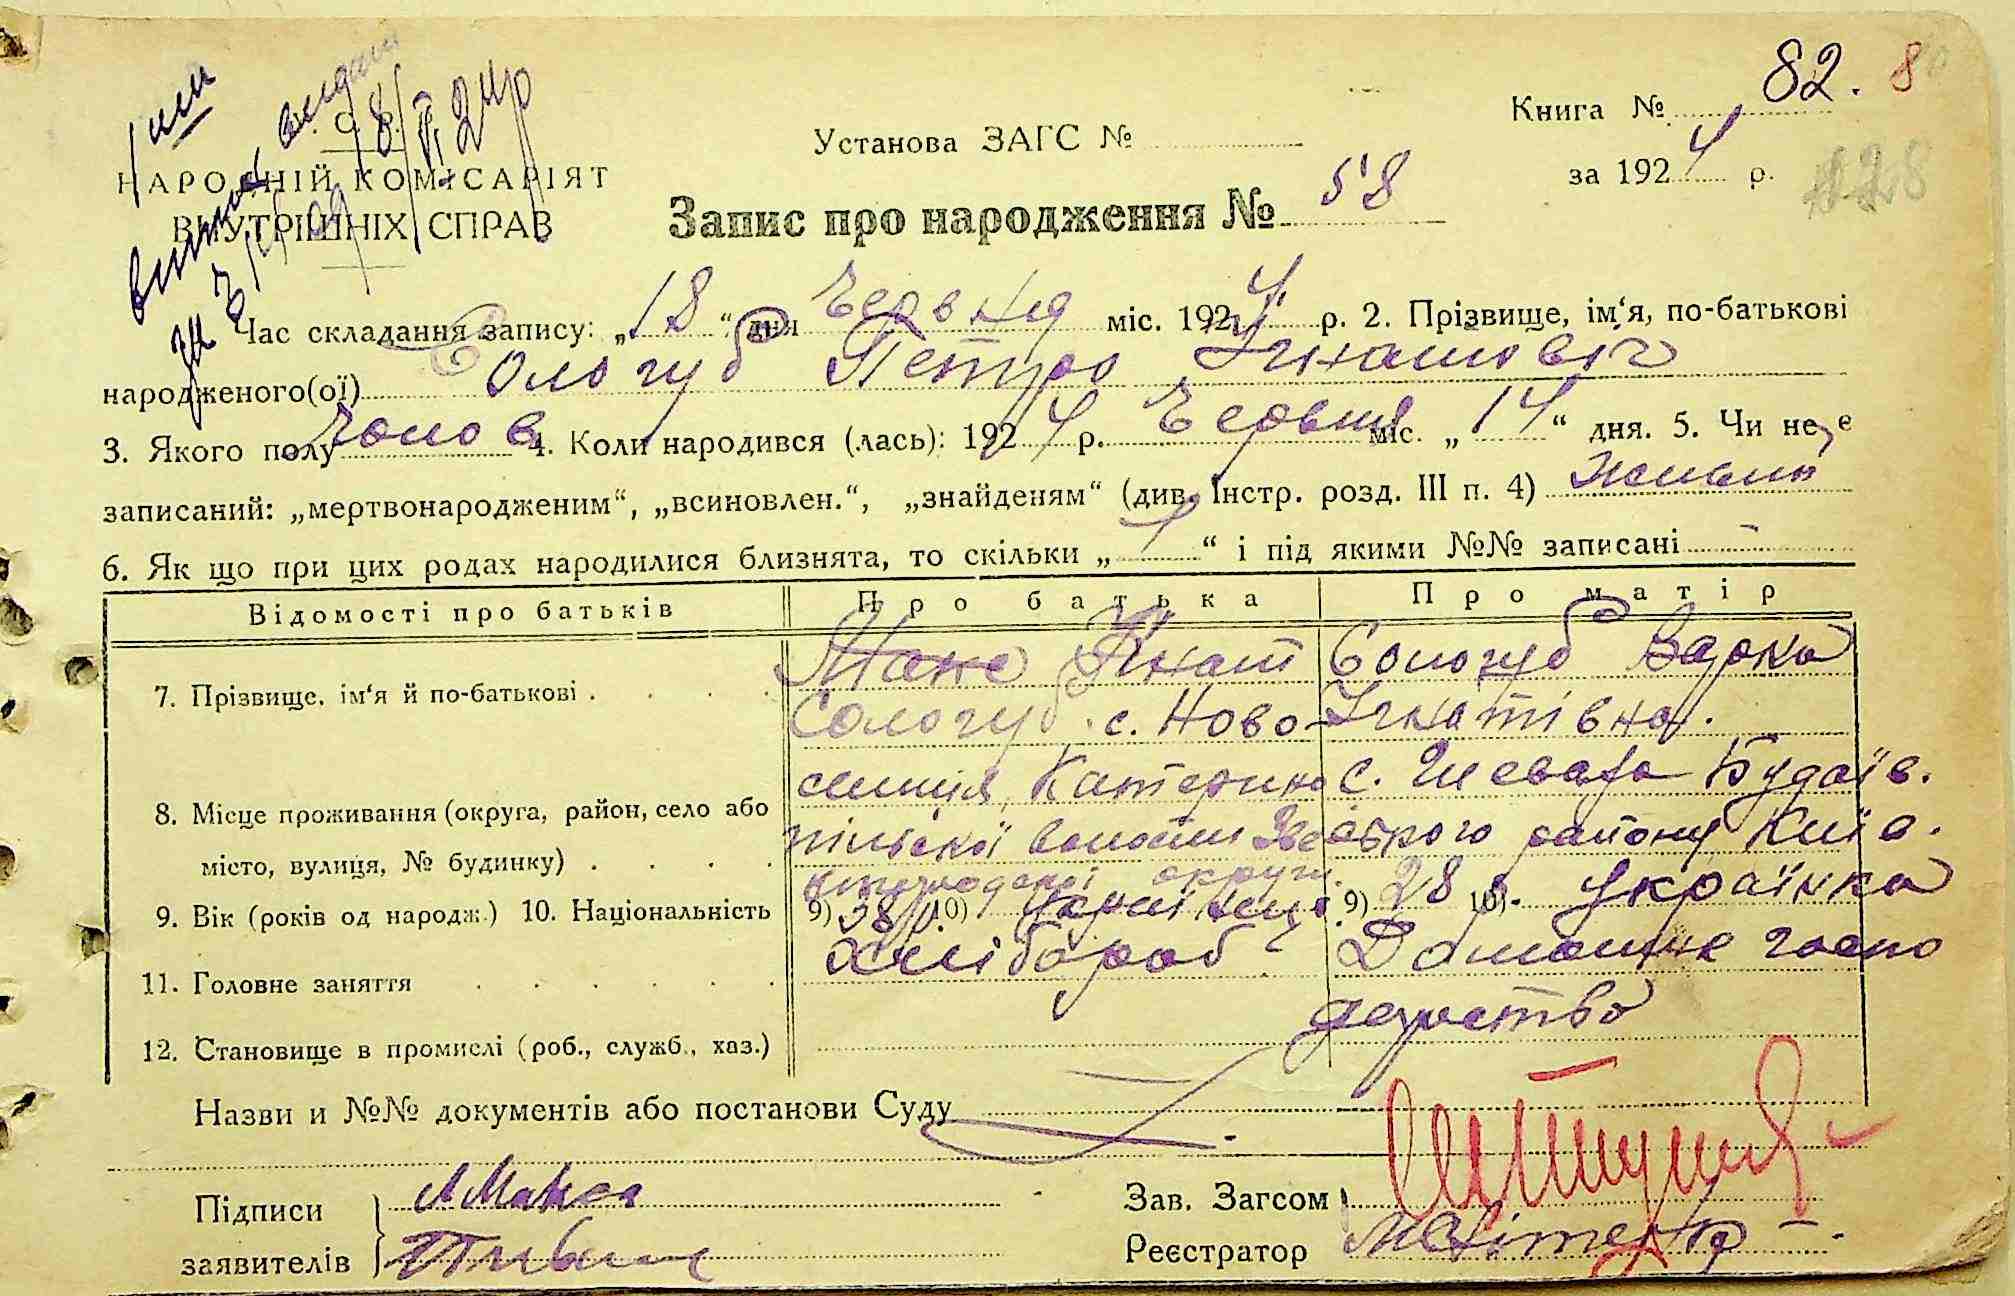 82. 8
Книга №
Установа ЗАГС №
за 1924 р.
128
У. С. Р. Р.
НАРОДНІЙ КОМІСАРІЯТ
ВНУТРІШНІХ СПРАВ
Запис про народження № 58
Час складання запису: „18“ дня Червня міс. 1924 р. 2. Прізвище, ім‘я, по-батькові
народженого(ої) Сологуб Петро Ігнатовіч
3. Якого полу чолов 4. Коли народився (лась): 1924 р. Червня міс. „14“ дня. 5. Чи не є
записаний: „мертвонародженим“, „всиновлен.“, „знайденям“ (див. Інстр. розд. III п. 4) живый
6. Як що при цих родах народилися близнята, то скільки „ “ і під якими №№ записані
Відомості про батьків Про батька Про матір
7. Прізвище, ім‘я й по-батькові Сологуб Варка
Сологуб. с. Ново- Ігнатівна.
8. Місце проживання (округа, район, село або селиця, Катерино с. Шевара Будаїв.
місто, вулиця, № будинку) пільскої волости Зве ського району Київ.
округи.
9. Вік (років од народж.) 10. Національність 9) 38 р. 10) Українець 9) 28 10) Українка
11. Головне заняття Хлібороб Домашнє госпо
дарство
12. Становище в промислі (роб., служб., хаз.)
Назви и №№ документів або постанови Суду
Підписи
заявителів
Зав. Загсом
Реєстратор